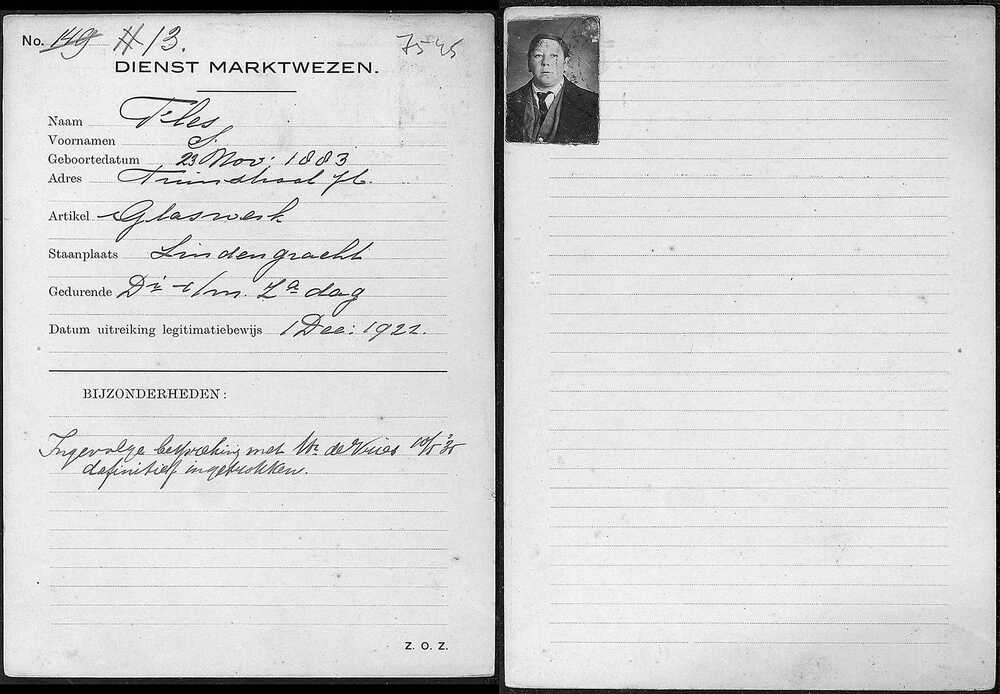 No. 149 H 13.
7545
DIENST MARKTWEZEN.
Naam Fles
Voornamen S.
Geboortedatum 23 Nov: 1883
Adres Tuinstraat
Artikel Glaswerk
Staanplaats Lindengracht
Gedurende Di t/m. Zadag
Datum uitreiking legitimatiebewijs 1 Dec: 1922.
BIJZONDERHEDEN:
Ingevolge bespreking met Mr. de Vries
definitief ingetrokken.
Z. O. Z.